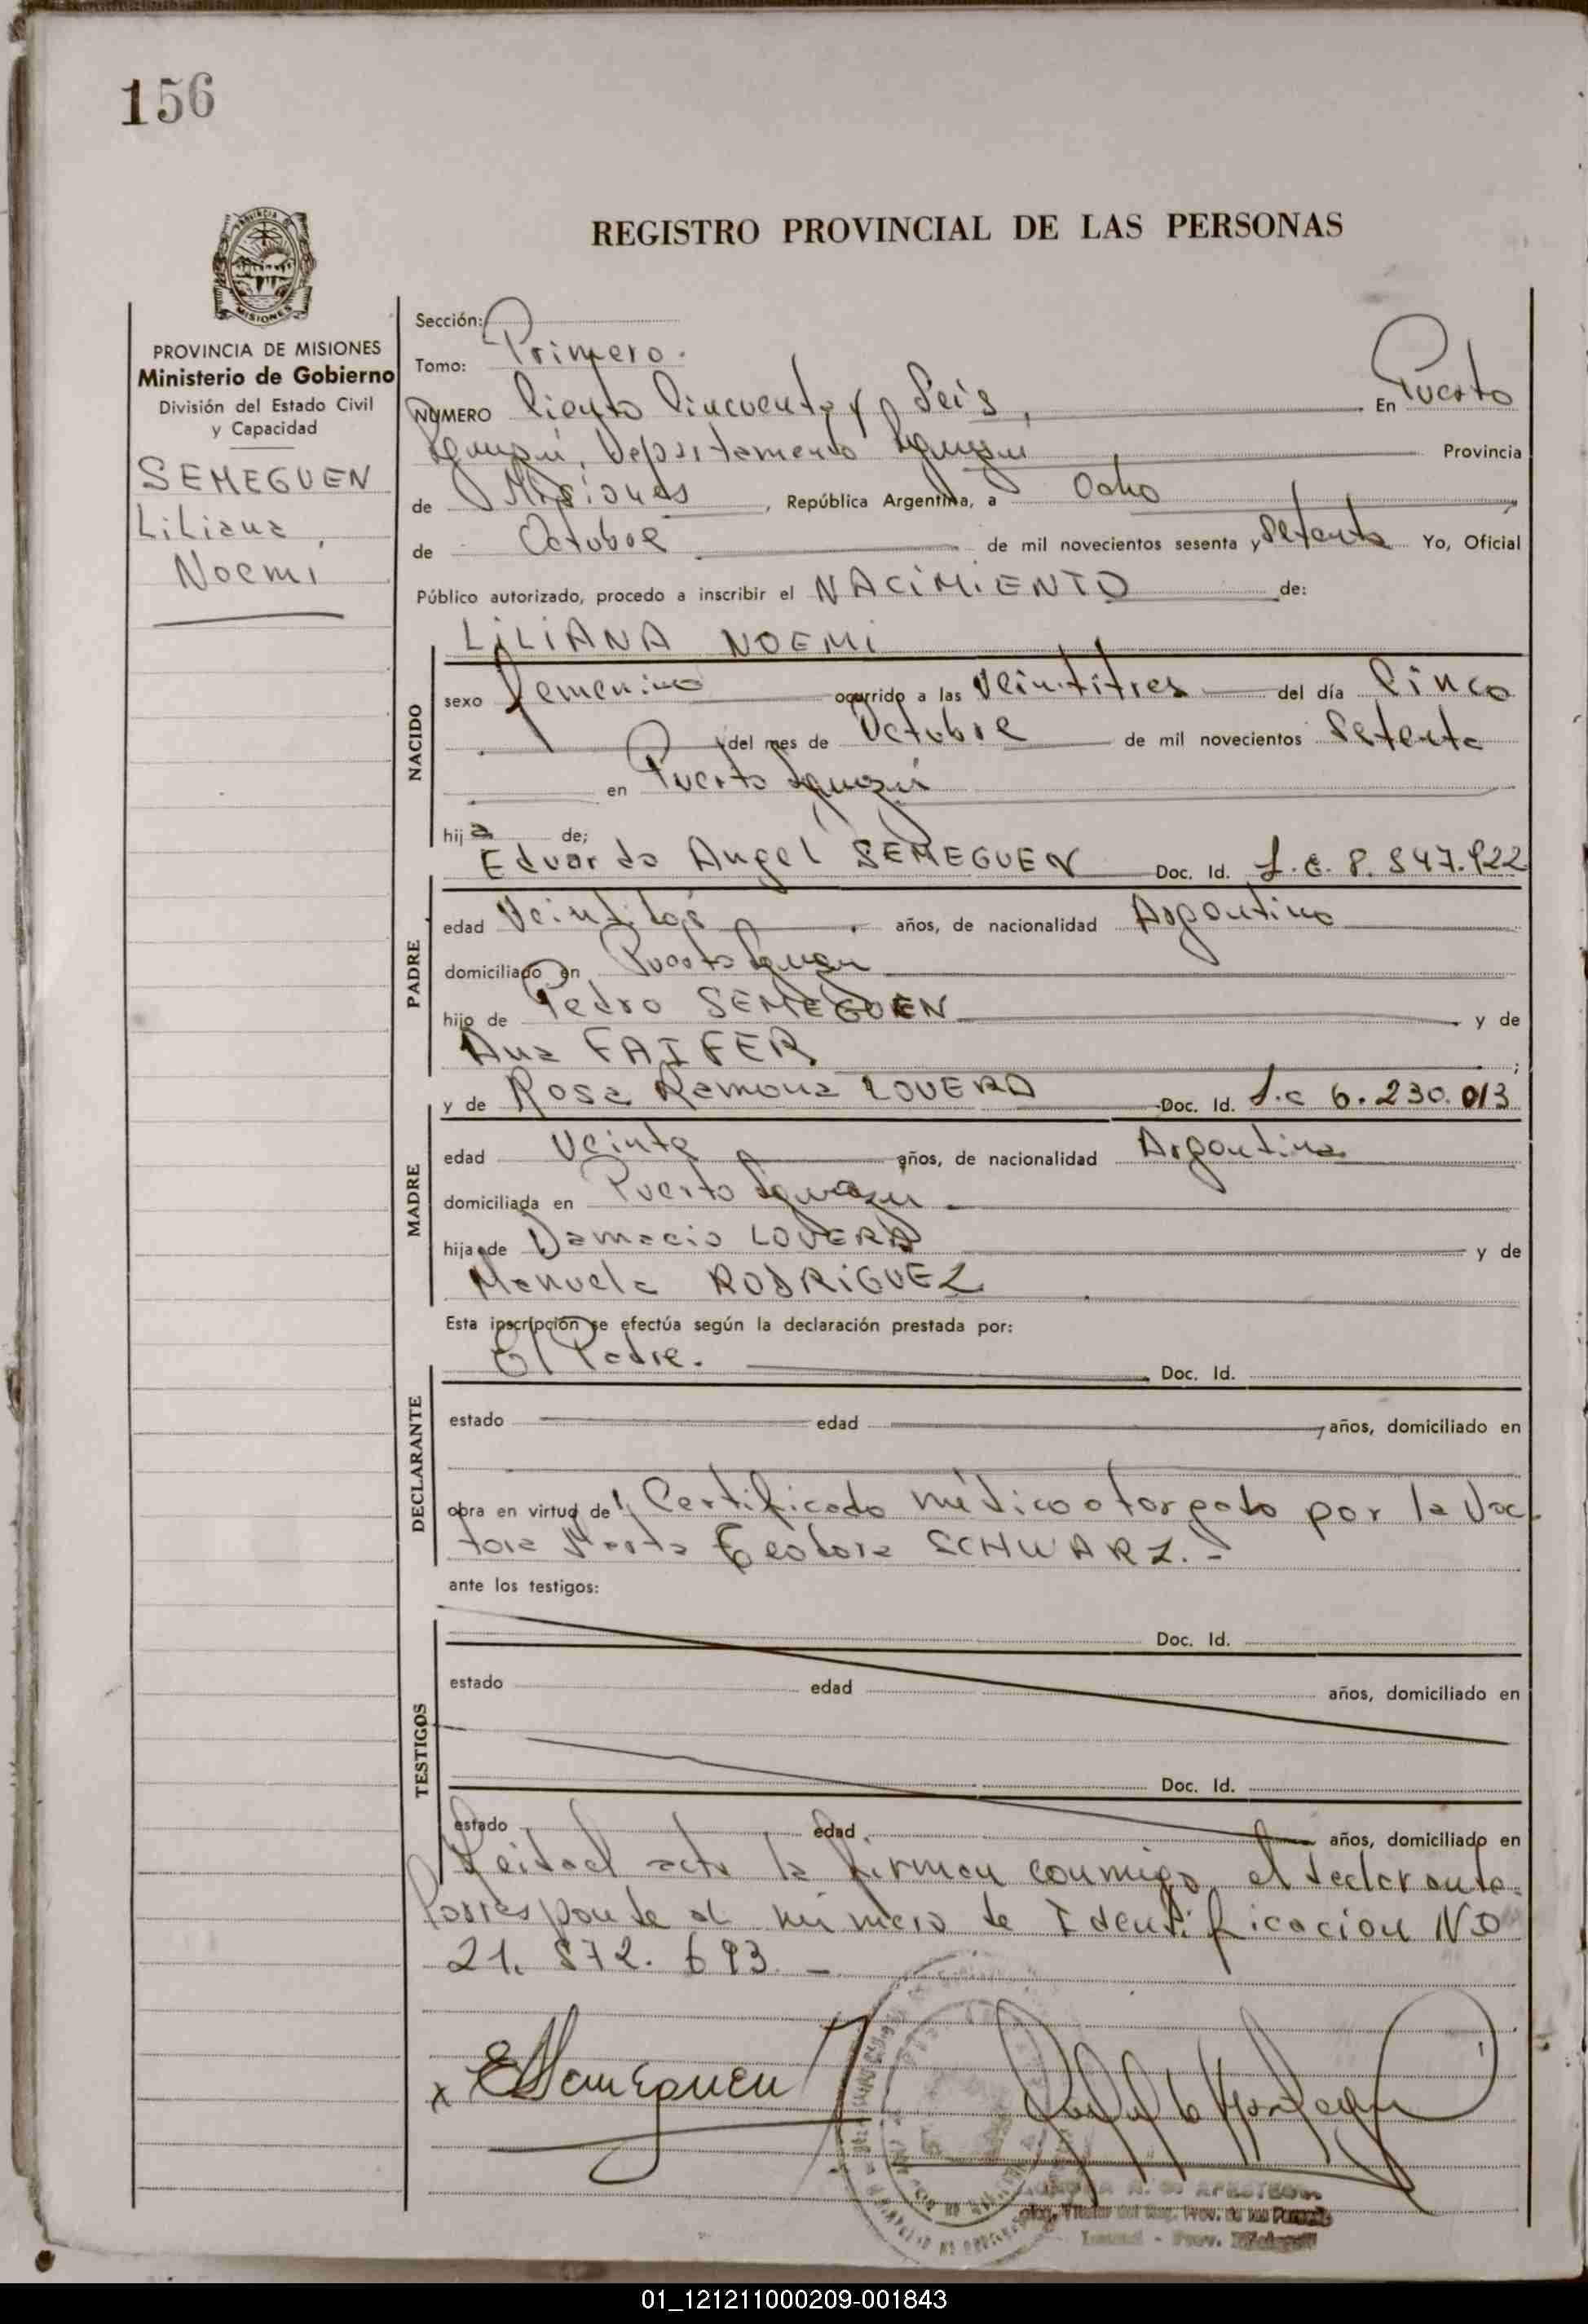 156
REGISTRO PROVINCIAL DE LAS PERSONAS
MISIONES
PROVINCIA DE MISIONES
Ministerio de Gobierno
División del Estado Civil
y Capacidad
SEMEGUEN
Liliana
Noemi
Sección:
Tomo: Primero.
NUMERO Ciento Cincuenta y Seis, En Puerto
Iguazú, Departamento Iguazú Provincia
de Misiones, República Argentina, a Ocho
de Octubre de mil novecientos sesenta y setenta Yo, Oficial
Público autorizado, procedo a inscribir el NACIMIENTO de:
LILIANA NOEMI
NACIDO
sexo femenino ocurrido a las Veintitres del día Cinco
del mes de Octubre de mil novecientos Setenta
en Puerto Iguazú
hija de;
Eduardo Angel SEMEGUEN Doc. Id.
PADRE
edad Veintidos años, de nacionalidad Argentino
domiciliado en Puerto Iguazu
hijo de Pedro SEMEGUEN y de
Ana FAIFER ;
y de Rosa Ramona LOVERA Doc. Id. L.c 6.230.013
MADRE
edad Veinte años, de nacionalidad Argentina
domiciliada en Puerto Iguazú
hija de Damacio LOVERA y de
Manuela RODRIGUEZ
Esta inscripción se efectúa según la declaración prestada por:
El Padre. Doc. Id.
DECLARANTE
estado edad años, domiciliado en
obra en virtud de Certificado médico otorgado por la Doc
tora Marta Teodora SCHWARZ.-
ante los testigos:
TESTIGOS
Doc. Id.
estado edad años, domiciliado en
Doc. Id.
estado edad años, domiciliado en
Leida el acta la firman conmigo el declarante.
Corresponde al número de Identificacion No
21. 872. 693. -
x ESemeguen
01_121211000209-001843